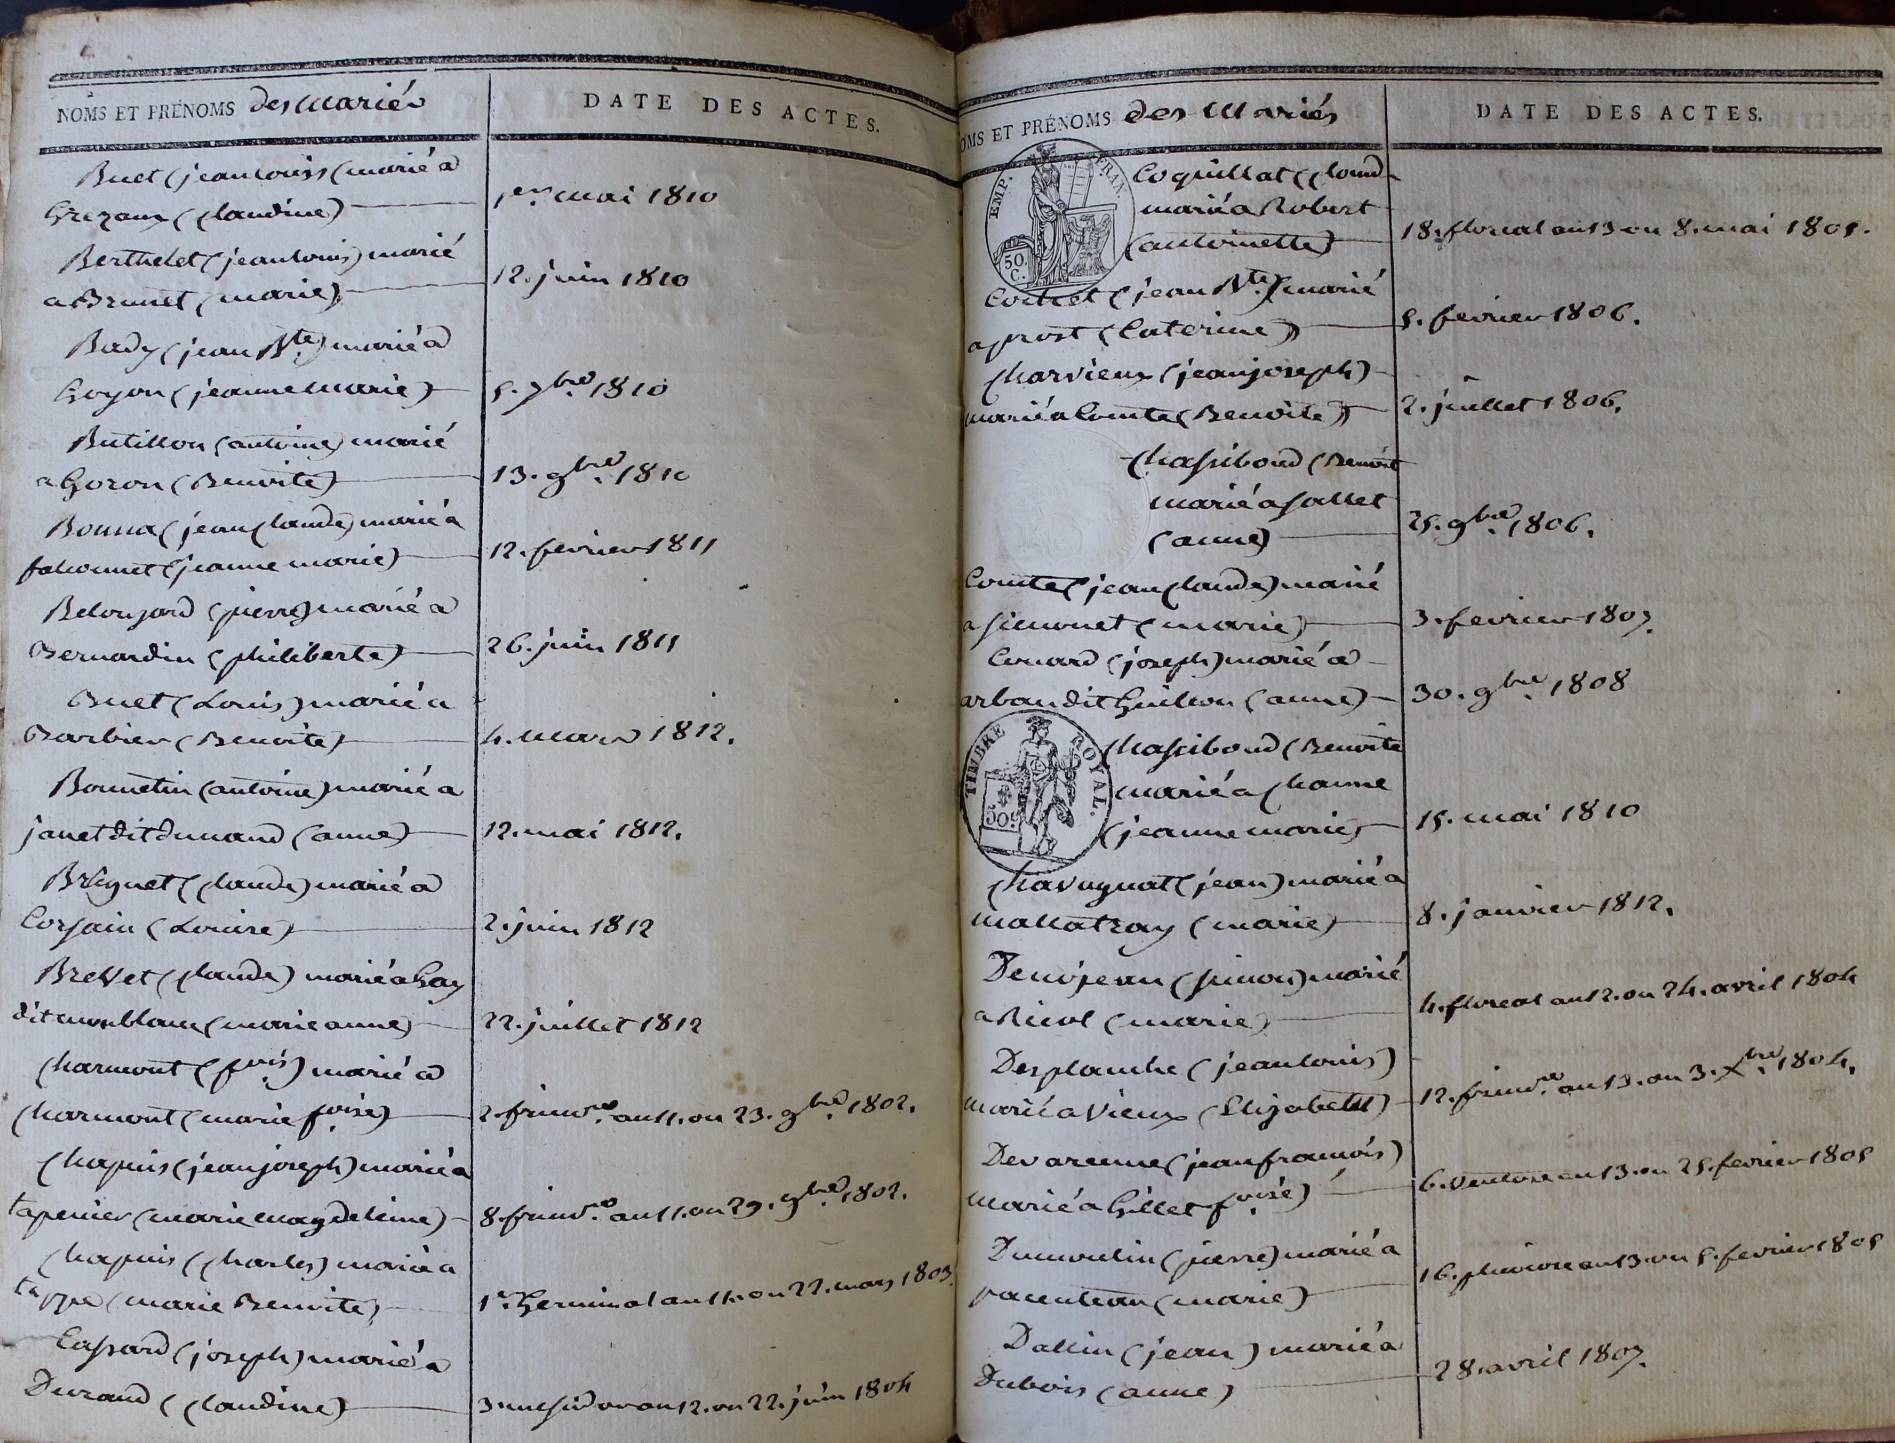 NOMS ET PRÉNOMS des mariés
DATE DES ACTES.
Buet (jean louis (marié a
(claudine)
1er. mai 1810
Berthelet (jean louis) marié
a Brunet (marie)
12. juin 1810
Bady (jean Bte.) marié a
Goyon (jeanne marie)
5. 7bre. 1810
Butillon (antoine) marié
a Goron (Benoite)
13. 9bre. 1810
Bonna (jean claude) marié a
falconnet (jeanne marie)
12. fevrier 1811
Belouzard (pierre) marié a
Bernardin (philiberte)
26. juin 1811
Buet (Louis) marié a
Barbier (Benoite)
4. mars 1812.
Bonnetin (antoine) marié a
janet dit dunand (anne)
12. mai 1812.
(claude) marié a
Corsain (Louise)
2. juin 1812
Brevet (claude) marié a Gay
dit (marie anne)
22. juillet 1812
Charmont (fois.) marié a
Charmont (marie foise.)
2. frimre. an 11. ou 23. 9bre. 1802.
Chapuis (jean joseph) marié a
tapenier (marie magdeleine)
8. frimre. an 11. ou 29. 9bre. 1802.
Chapuis (charles) marié a
tappe (marie Benoite)
1er. Germinal an 11. ou 22. mars 1803.
Cassard (joseph) marié a
Durand (claudine)
3. messidor an 12. ou 22. juin 1804
OMS ET PRÉNOMS des Mariés
DATE DES ACTES.
EMP. FRAN.
50.
C.
Coquillat (claud
marié a Robert
(antoinette)
18. floreal an 13 ou 8. mai 1805.
(jean Bte.) marié
a prost (Caterine)
5. fevrier 1806.
Charvieux (jean joseph)
marié a Comte (Benoite)
2. juillet 1806.
Chassiboud (Benoit
marié a Sallet
(anne)
25. 9bre. 1806.
Comte (jean claude) marié
a simonet (marie)
3. fevrier 1807.
Conard (joseph) marié a
arban dit Guillon (anne)
30. 9bre. 1808
TIMBRE ROYAL.
Chassiboud (Benoite
marié a Channe
(jeanne marie)
15. mai 1810
Chavagnat (jean) marié a
mallatray (marie)
8. janvier 1812.
Denojean (simon) marié
a Ricol (marie)
4. floreal an 12. ou 24. avril 1804
Desplanche (jean louis)
marié a Vieux (Elizabeth)
12. frimre. an 13. ou 3. Xbre. 1804.
Devarenne (jean francois)
marié a Gillet foise.)
6. ventose an 13. ou 25. fevrier 1805
Dumoulin (pierre) marié a
(marie)
16. pluviose an 13. ou 5. fevrier 1805
Dallin (jean) marié a
Dubois (anne)
28. avril 1807.